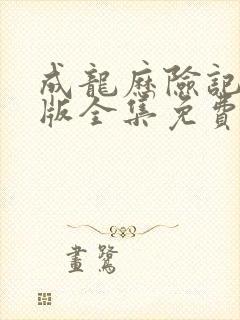 成龍歷險記
版全集免費
畫鷺